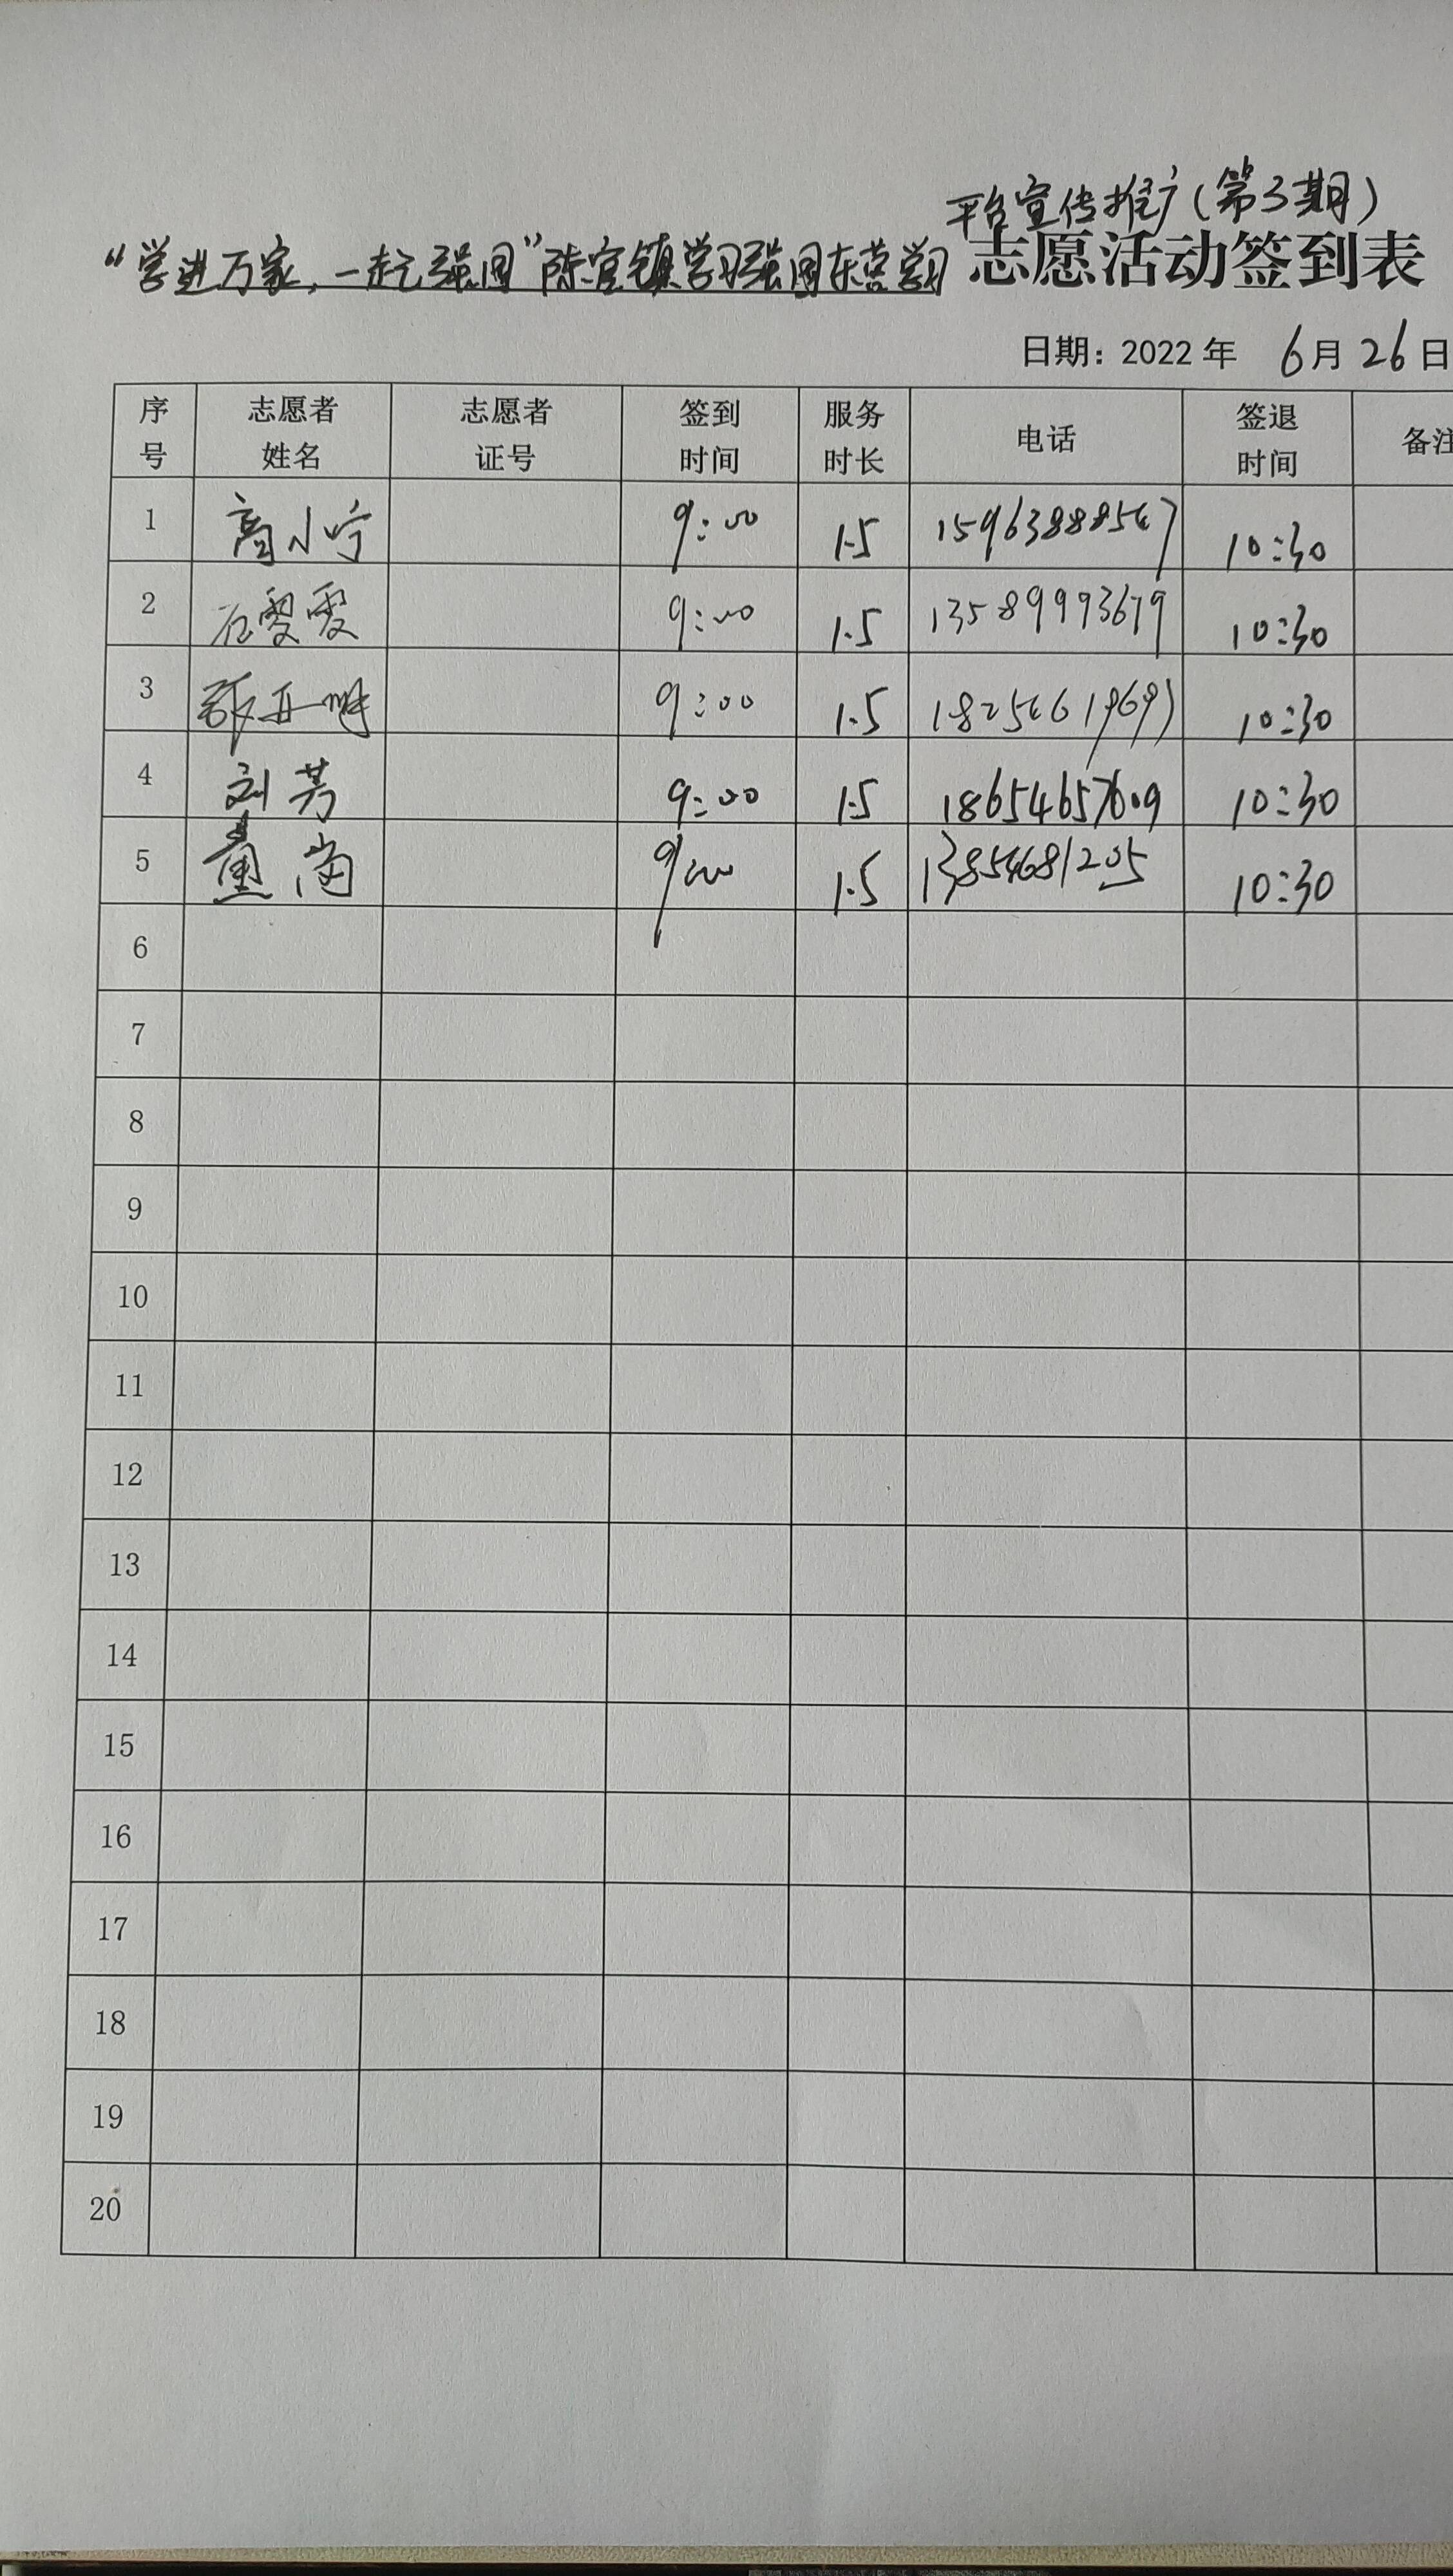 平台宣传推广(第3期)
“学进万家,一起强国”陈官镇学习强国东营学习 志愿活动签到表
日期：2022 年 6月 26日
序号 志愿者姓名 志愿者证号 签到时间 服务时长 电话 签退时间 备注
1 高小宁 9:00 1.5 15963888567 10:30
2 石雯雯 9:00 1.5 13589993679 10:30
3 9:00 1.5 10:30
4 刘芳 9:00 1.5 18654657609 10:30
5 董岗 9:00 1.5 13854681205 10:30
6
7
8
9
10
11
12
13
14
15
16
17
18
19
20